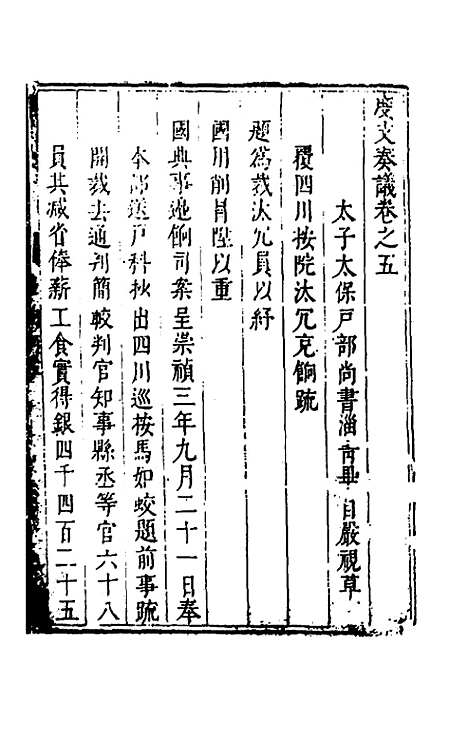 度支奏議卷之五
太子太保戶部尚書淄青畢自嚴視草
覆四川按院汰冗充餉疏
題為裁汰冗員以紓
國用削冒陞以重
國典事邊餉司案呈崇禎三年九月二十一日奉
本部送戶科抄出四川巡按馬如蛟題前事疏
開裁去通判簡較判官知事縣丞等官六十八
員共減省俸薪工食實得銀四千四百二十五